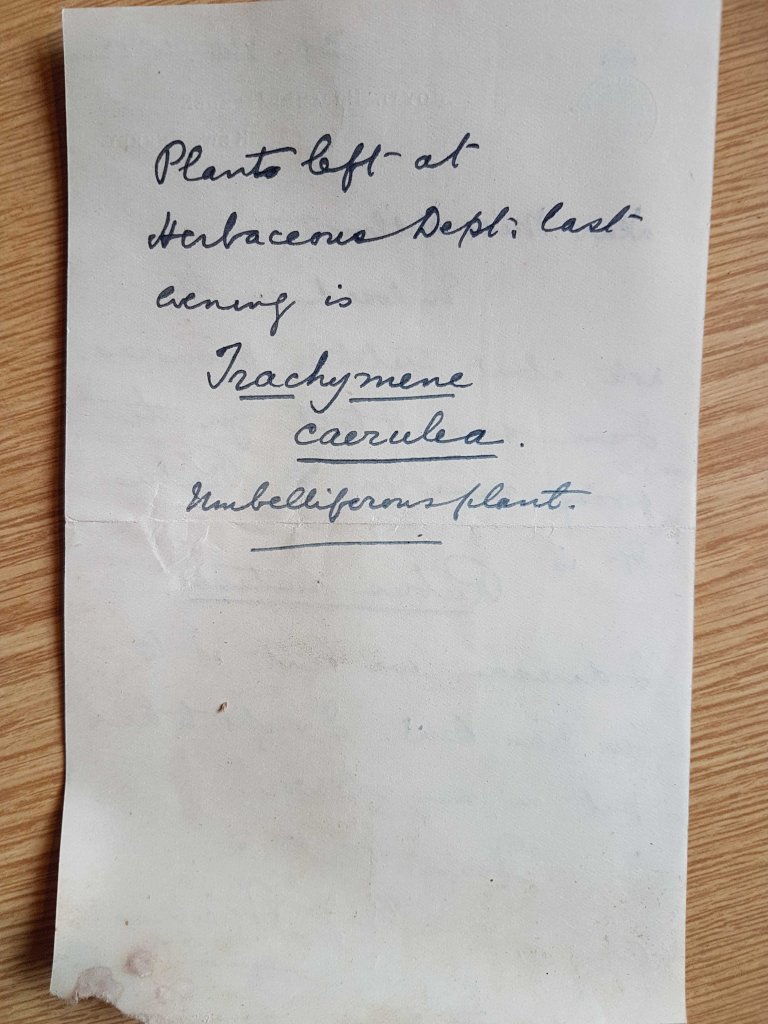 Plants left at
Herbaceous Dept: last
evening is
Trachymene
caerulea.
Umbelliferous plant.